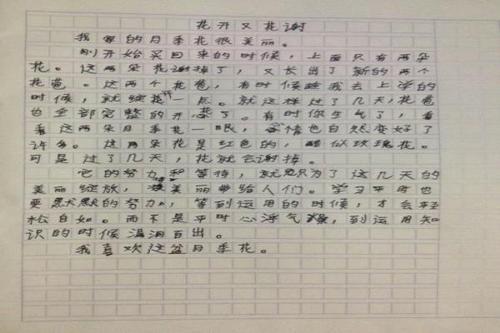 花开又花谢
我家的月季花很美丽。
刚开始买回来的时候，上面只有两朵
花。这两朵花谢掉了，又长出了新的两个
花苞。这两个花苞，有时候趁我去上学的
时候，就绽放一点。就这样过了几天，花苞
也全部完整的开了。有时你生气了，看
看这两朵月季花一眼，心情也自然变好了
许多。这两朵花是红色的，酷似玫瑰花。
可是过了几天，花就会谢掉。
它的努力和等待，就只为了这几天的
美丽绽放，美丽带给人们。学习平时也
要默默的努力，等到运用的时候，才会轻
松自如。而不是平时心浮气躁，到运用知
识的时候漏洞百出。
我喜欢这盆月季花。